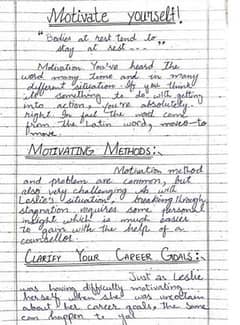 Motivate yourself!
"Bodies at rest tend to
stay at rest --- "
Motivation You've heard the
word many time and in many
different situation. If you think
it's something to do with getting
into action, you're absolutely
right. In fact the word come
from the Latin word, move=to
move.
MOTIVATING METHODS:-
Motivation method
and problem are common, but
also very challenging. As with
Leslie's situation, breaking through
stagnation requires some personal
insight which is much easier
to gain with the help of a
counsellor.
CLARIFY YOUR CAREER GOALS:-
Just as Leslie
was having difficulty motivating
herself when she was unclear
about her career goals, the same
can happen to you